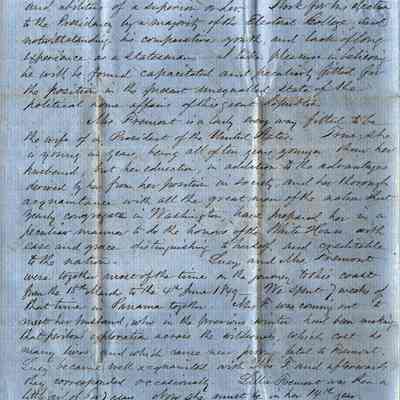 and abilities of a superior order. I look for his election
to the Presidency by a majority of the Electoral College, and
notwithstanding his comparative youth, and lack of long
experience as a Statesman. I take pleasure in believing
he will be found capacitated and peculiarly fitted for
the position in the present unequalled state of the
political home affairs of this great Republic.
Mrs Fremont is a lady every way fitted to be
the wife of a President of the United States. True, she
is young in years, being all of ten years younger than her
husband, but her education, in addition to the advantages
derived by her from her position in society and her thorough
acquaintance with all the great men of the nation that
yearly congregate in Washington, have prepared her in a
peculiar manner to do the honors of the White House with
ease and grace distinguishing to herself, and creditable
to the nation. Lucy and Mrs Fremont
were together most of the time on the journey to this coast
from the 15th March to the 4th June 1849. We spent 7 weeks of
that time in Panama together. Mrs F. was coming out to
meet her husband, who in the previous winter had been making
that perilous exploration across the wilderness, which cost so
many lives and which came near proving fatal to Fremont.
Lucy became well acquainted with Mrs F and afterwards
they corresponded occasionally. Lillie Fremont was then a
little girl of 7 years. Now she must be in her 14th year.